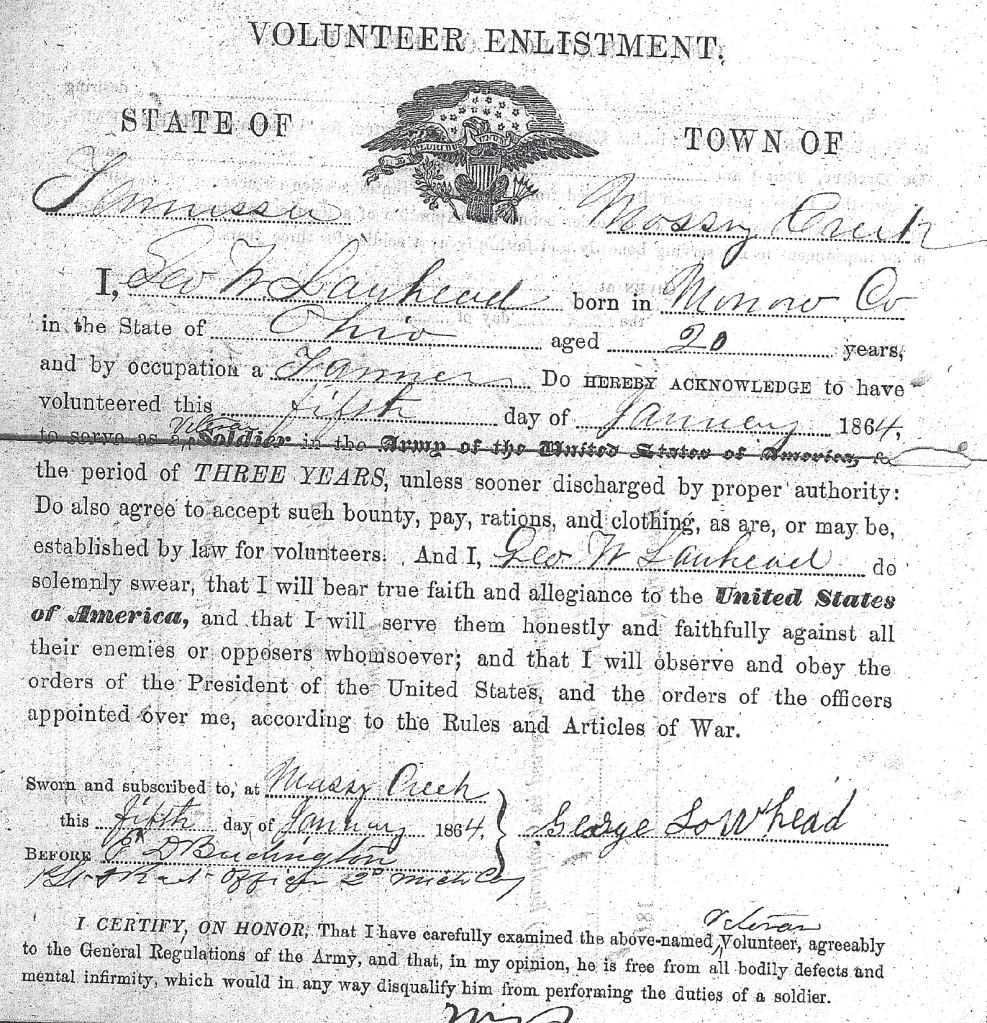 VOLUNTEER ENLISTMENT.
STATE OF TOWN OF
Tennessee Mossy Creek
I, Geo W Lawhead born in Monow Co
in the State of Ohio aged 20 years,
and by occupation a Farmer Do HEREBY ACKNOWLEDGE to have
volunteered this fifth day of January 1864,
Veteran
to serve as a Soldier in the Army of the United States of America,
the period of THREE YEARS, unless sooner discharged by proper authority:
Do also agree to accept such bounty, pay, rations, and clothing, as are, or may be,
established by law for volunteers. And I, Geo W Lawhead do
solemnly swear, that I will bear true faith and allegiance to the United States
of America, and that I will serve them honestly and faithfully against all
their enemies or opposers whomsoever; and that I will observe and obey the
orders of the President of the United States, and the orders of the officers
appointed over me, according to the Rules and Articles of War.
Sworn and subscribed to, at Mossy Creek
this fifth day of January 1864. George LoWhead
BEFORE
Officer 2d Mich Cav
Veteran
I CERTIFY, ON HONOR, That I have carefully examined the above-named Volunteer, agreeably
to the General Regulations of the Army, and that, in my opinion, he is free from all bodily defects and
mental infirmity, which would in any way disqualify him from performing the duties of a soldier.